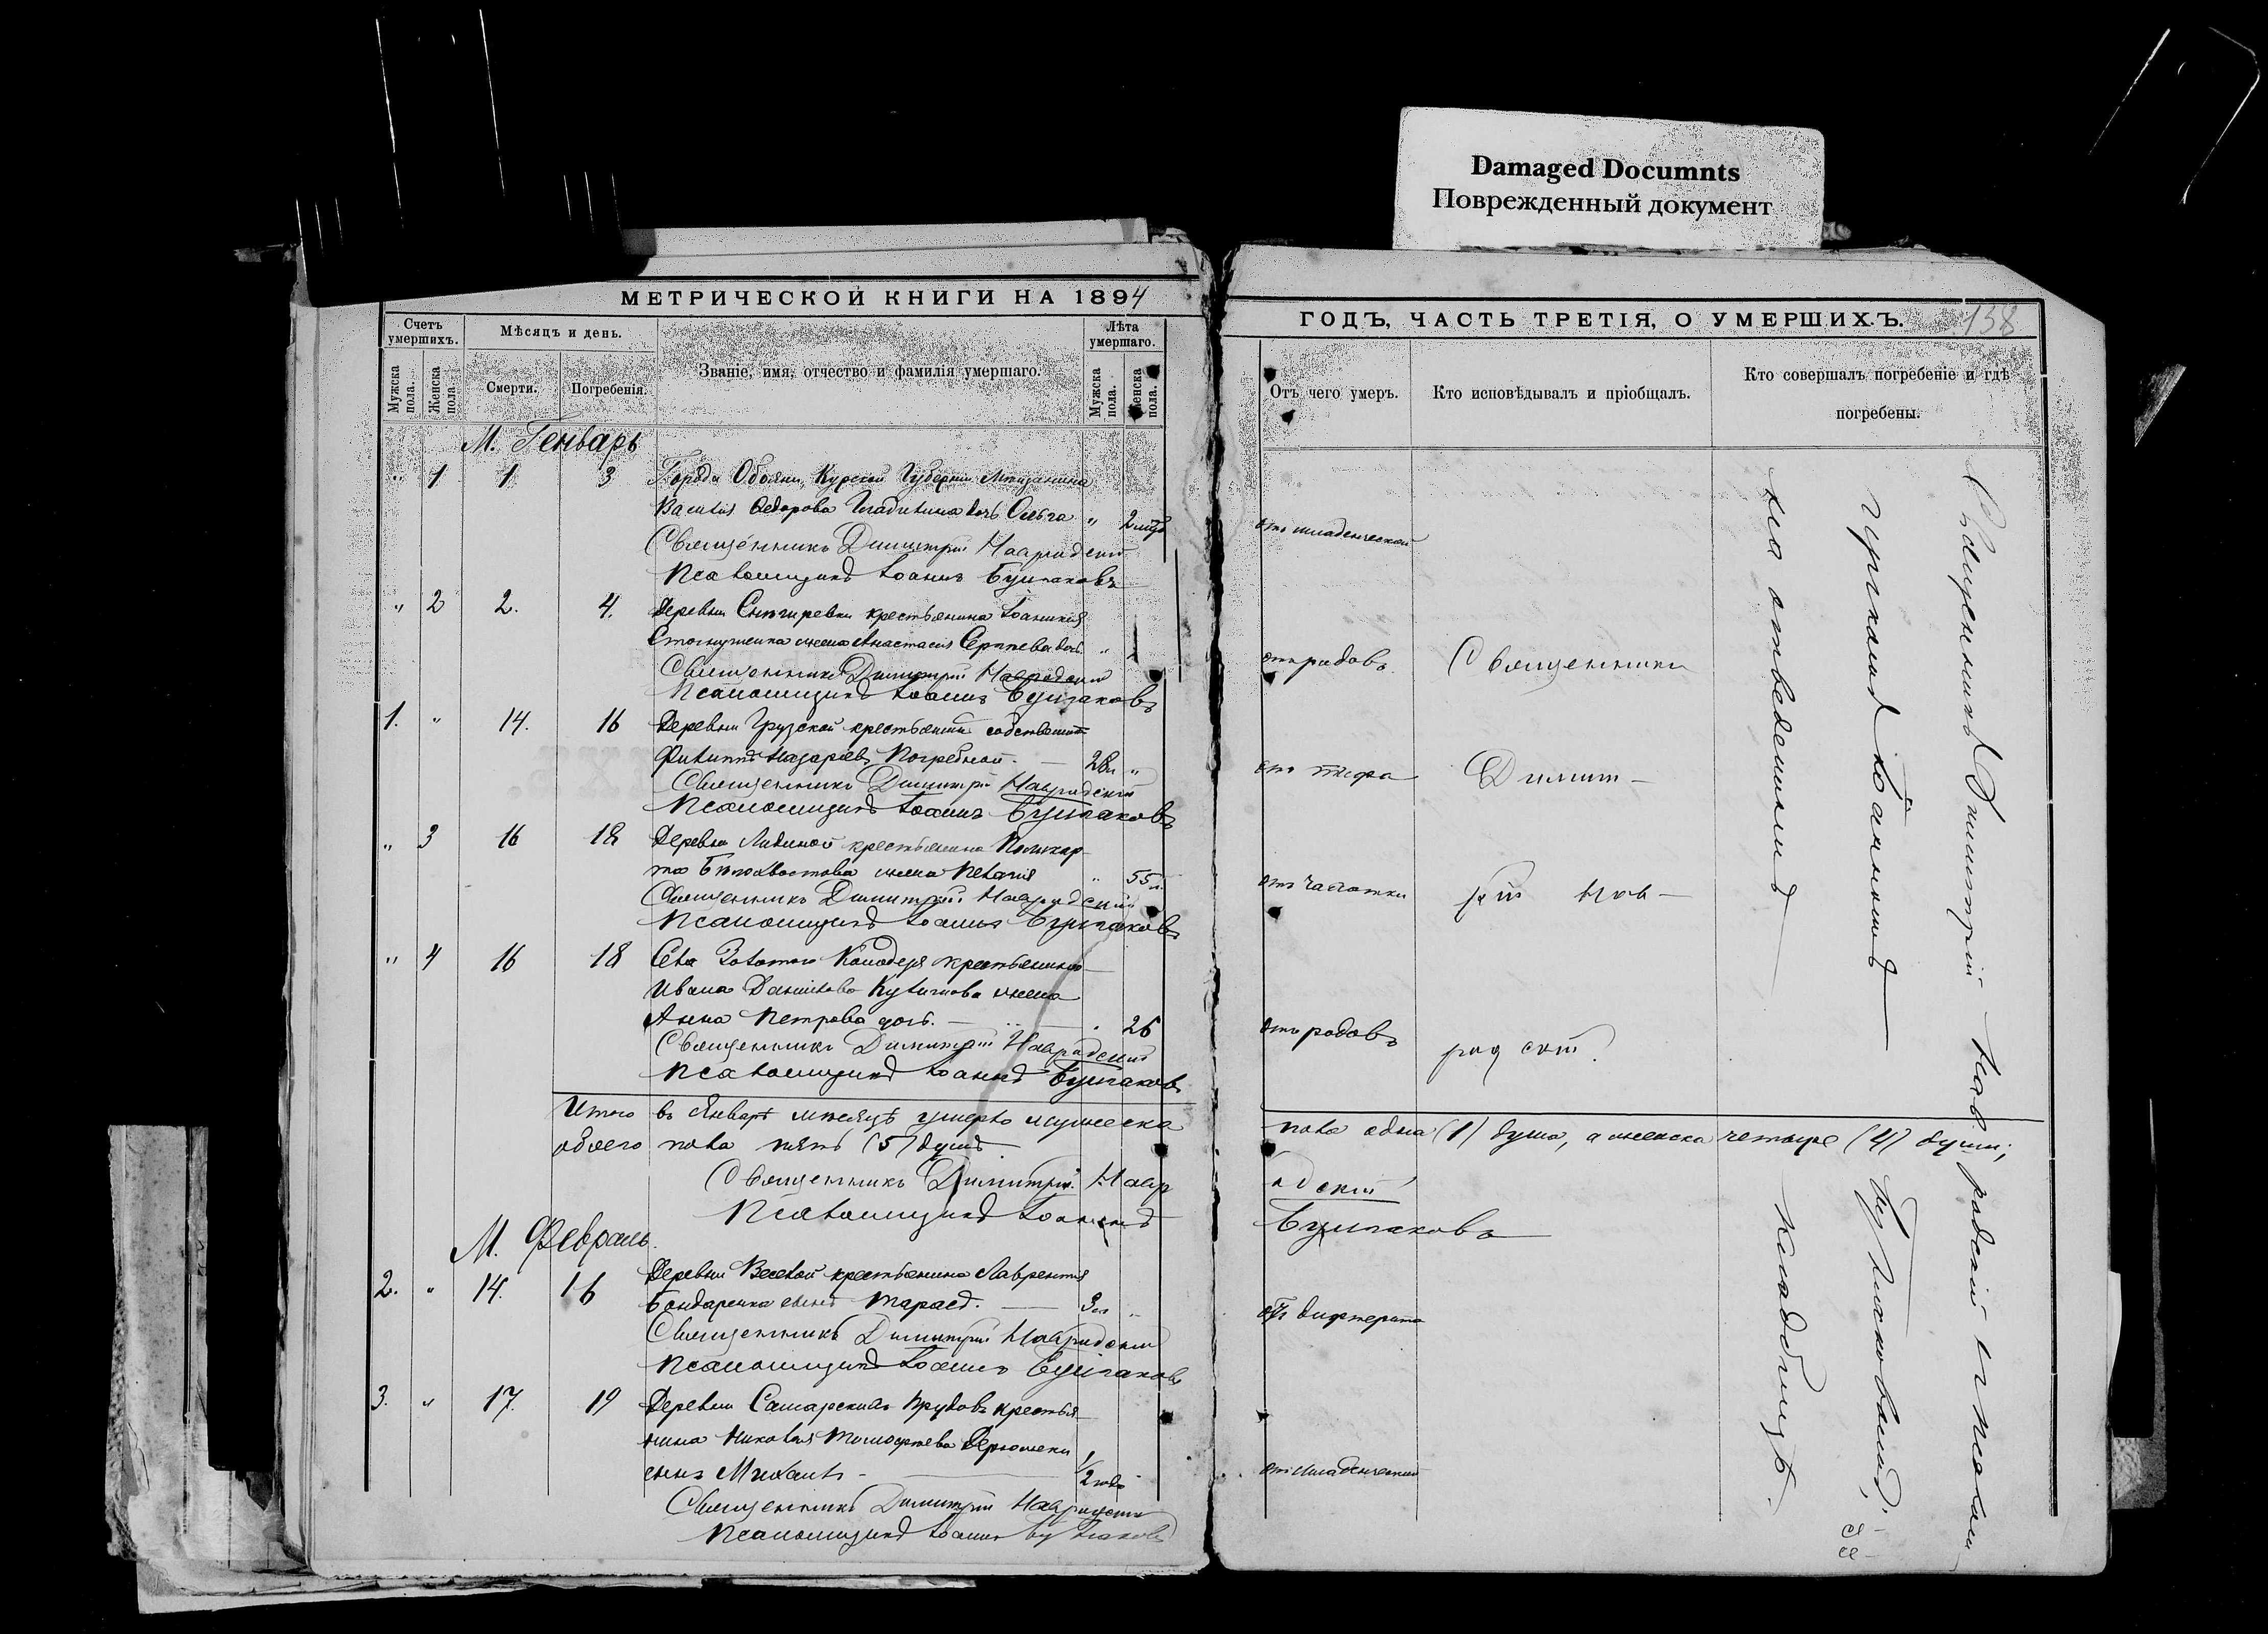 Damaged Documnts
Поврежденный документ
МЕТРИЧЕСКОЙ КНИГИ НА 1894
Счетъ умершихъ.
Мѣсяцъ и день.
Званіе, имя, отчество и фамилія умершаго.
Лѣта умершаго.
Мужска пола.
Женска пола
Смерти.
Погребенія.
Мужска пола.
Женска пола.
М. Генварь
" 1 1 3 Города Обояни, Курской Губерніи Мѣщанина
Василія Ѳедорова дочь Ольга " 2
Священникъ Димитрій Навродскій
Псаломщикъ Іоаннъ Булгаковъ
" 2 2. 4. Деревни Снѣгиревки крестьянина Іоанникія
жена Анастасія Сергѣева дочь "
Священникъ Димитрій Навродскій
Псаломщикъ Іоаннъ Булгаковъ
1. " 14. 16 Деревни Грузской крестьянинъ собственникъ
Филиппъ Назаріевъ Погребной. — 28л "
Священникъ Димитрій Навродскій
Псаломщикъ Іоаннъ Булгаковъ
" 3 16 18 Деревни Лидиной крестьянина Поликар-
па Бѣлохвостова жена Пелагія " 55л.
Священникъ Димитрій Навродскій
Псаломщикъ Іоаннъ Булгаковъ
" 4 16 18 Села Золотого Колодезя крестьянина
Ивана Данилова жена
Анна Петрова дочь. — " 26
Священникъ Димитрій Навродскій
Псаломщикъ Іоаннъ Булгаковъ
Итого въ Январѣ мѣсяцѣ умерло мужеска
обоего пола пять (5) душъ
Священникъ Димитрій Навр
Псаломщикъ Іоаннъ
М. Февраль.
2. " 14. 16 Деревни Веселой крестьянина Лаврентія
Бондаренка сынъ Тарасъ. — 3л "
Священникъ Димитрій Навродскій
Псаломщикъ Іоаннъ Булгаковъ
3. " 17. 19 Деревни Самарскихъ Прудовъ крестья-
нина Николая Тимоѳеева
сынъ Михаилъ — 1/2 года
Священникъ Димитрій Навродскій
Псаломщикъ Іоаннъ Булгаковъ
ГОДЪ, ЧАСТЬ ТРЕТІЯ, О УМЕРШИХЪ.
138
Отъ чего умеръ.
Кто исповѣдывалъ и пріобщалъ.
Кто совершалъ погребеніе и гдѣ погребены.
отъ младенческой
отъ родовъ
Священникъ
отъ тифа
Димит-
отъ чахотки
рій Нав-
отъ родовъ
родскій.
пола одна (1) душа, а женска четыре (4) души;
одскій
Булгаковъ
отъ дифтерита
отъ младенческой
Священникъ Димитрій Навродскій съ псалом
щикомъ Іоанномъ Булгаковымъ,
на отведенномъ кладбищѣ.